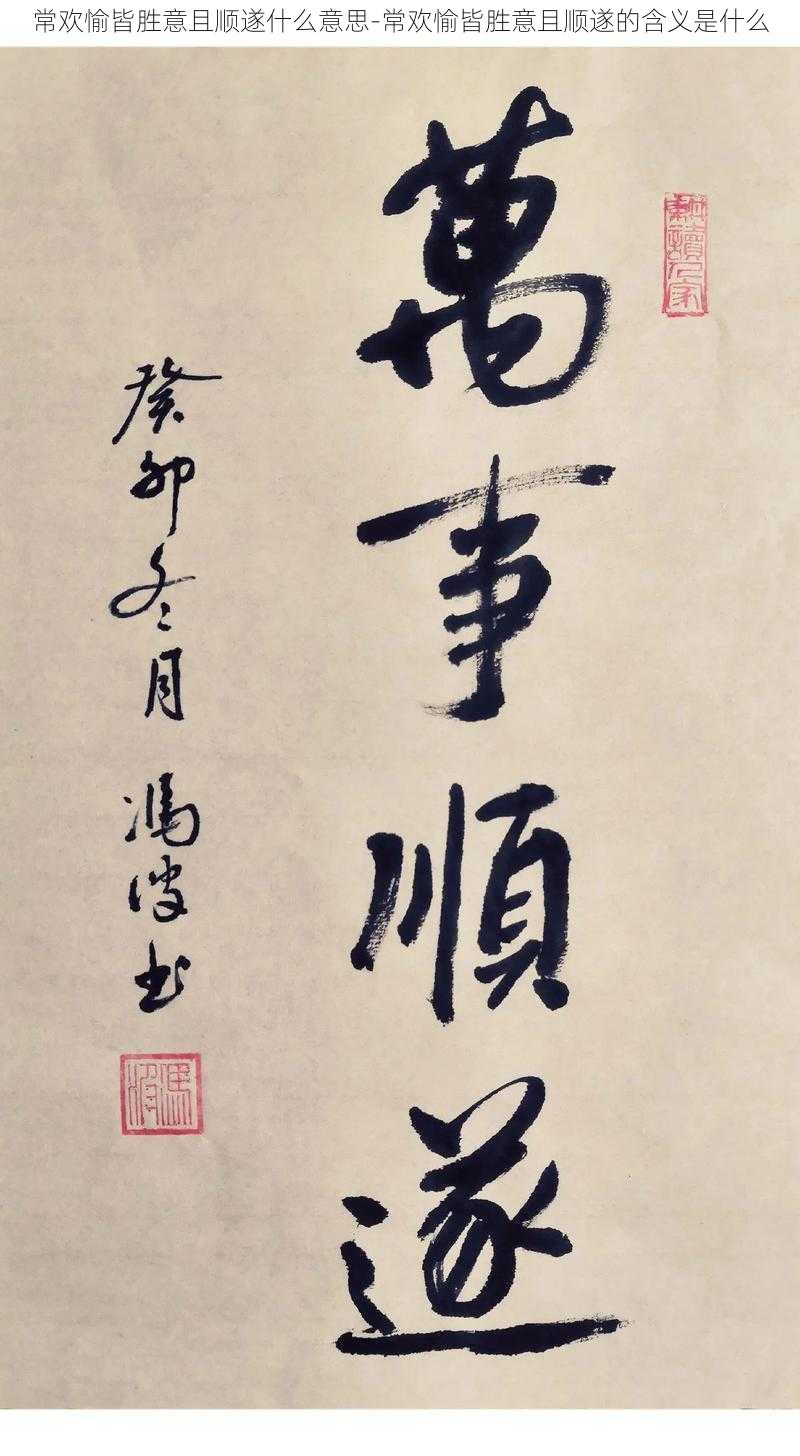 常欢愉皆胜意且顺遂什么意思-常欢愉皆胜意且顺遂的含义是什么
萬事順遂
癸卯冬月
馮波书